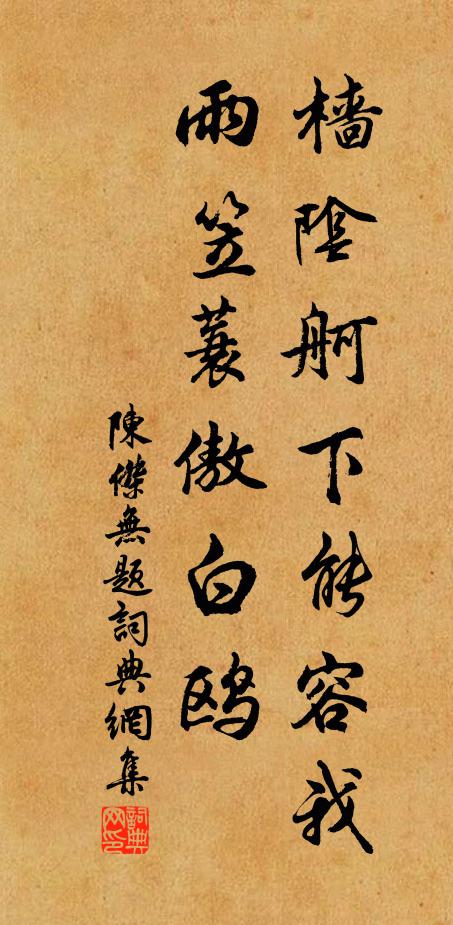 檣陰舸下能容我
雨笠蓑傲白鸥
陳傑無題詞典網集
詞典网印